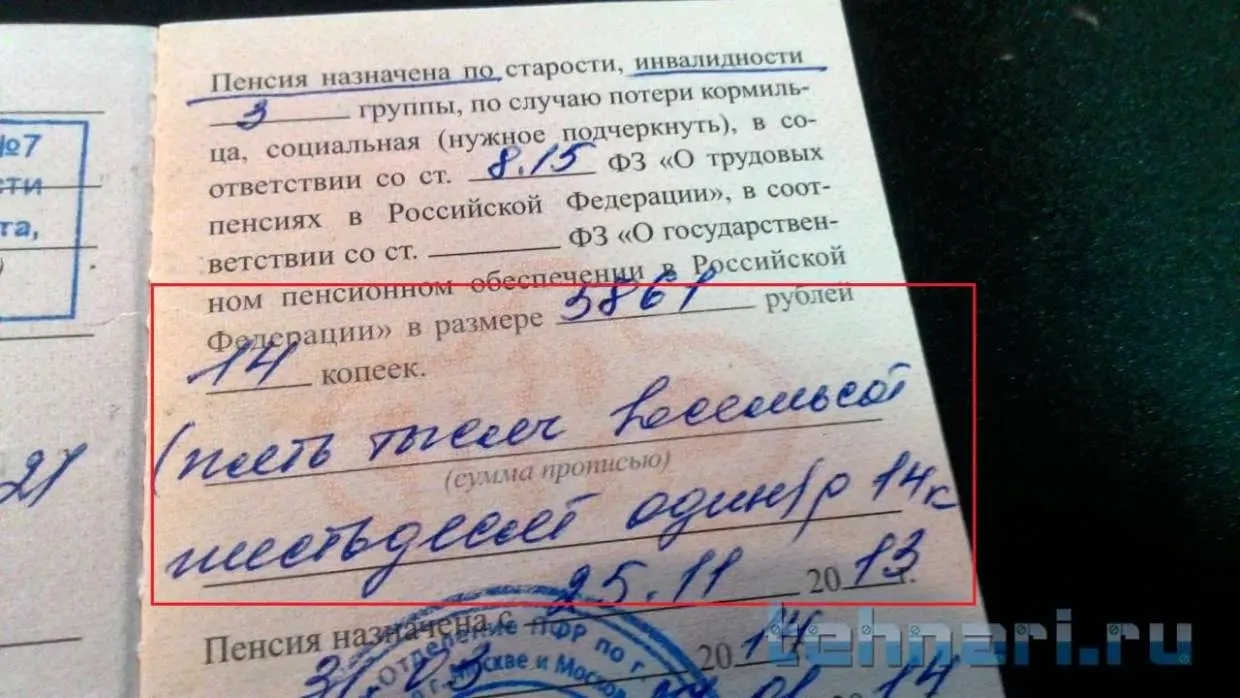 №7
сти
та,
21
Пенсия назначена по старости, инвалидности
3 группы, по случаю потери кормиль-
ца, социальная (нужное подчеркнуть), в со-
ответствии со ст. 8.15 ФЗ «О трудовых
пенсиях в Российской Федерации», в соот-
ветствии со ст. ФЗ «О государствен-
ном пенсионном обеспечении в Российской
Федерации» в размере 5861 рублей
14 копеек.
(пять тысяч восемьсот
(сумма прописью)
шестьдесят один) р 14 к
25.11 2013 г.
Пенсия назначена с
Отделение ПФР по г.
Москве и Москов
31.03 2014
01 14
tehnari.ru